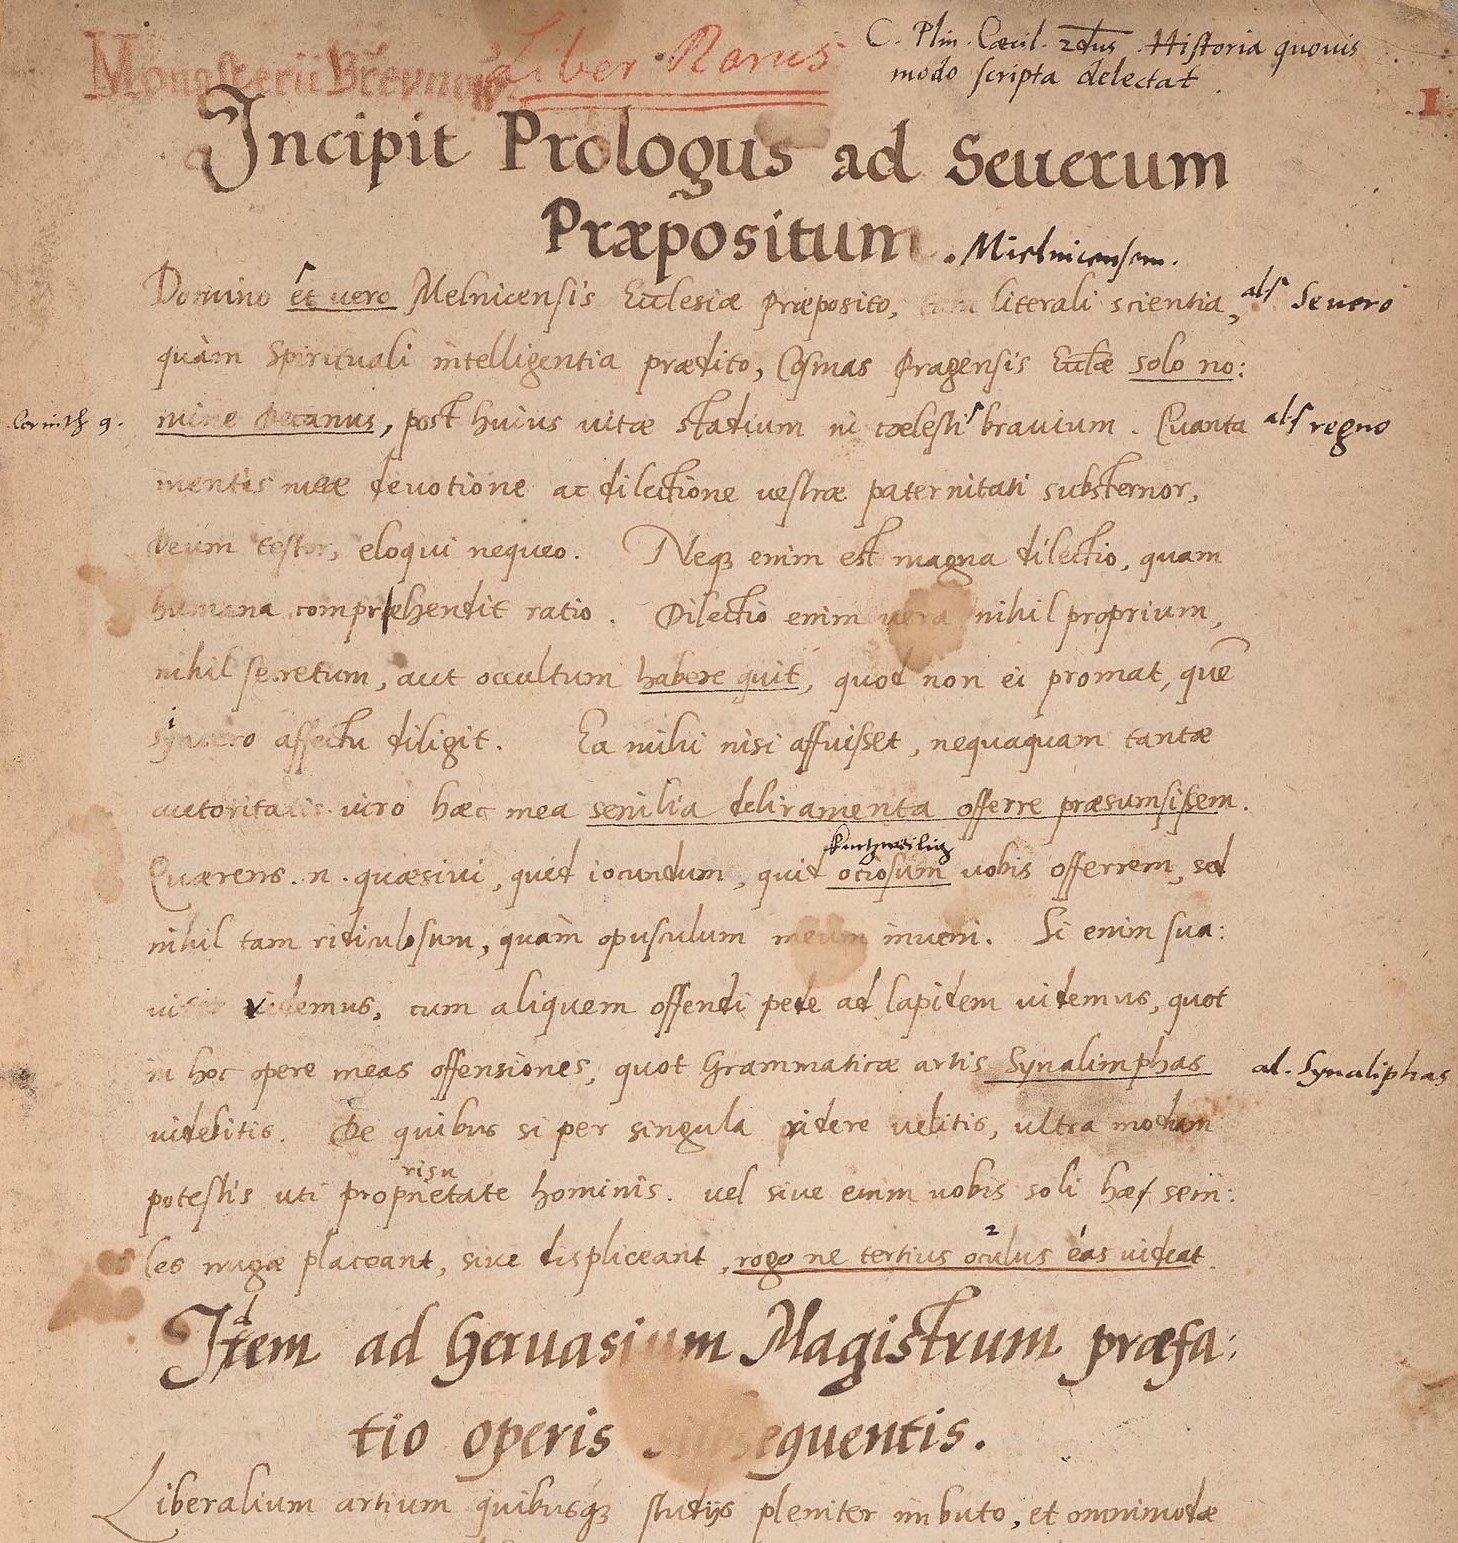 Monasterii Brevnov.
Liber Rarus
C. Plin. Cæcil. 2dus. Historia quouis
modo scripta delectat.
1
Incipit Prologus ad Seuerum
Præpositum. Mielnicensem.
Domino et vero Melnicensis Ecclesiæ Præposito, tam literali scientia, als Seuero
quàm Spirituali intelligentia prædito, Cosmas Pragensis Eccłæ solo no:
Corinth 9. mine Decanus, post huius vitæ stadium in cœlesti brauium. Quanta als regno
mentis meæ deuotione ac dilectione vestræ paternitati substernor,
Deum testor, eloqui nequeo. Neqȝ enim est magna dilectio, quam
humana comprehendit ratio. Dilectio enim vera nihil proprium,
nihil secretum, aut occultum habere quit, quod non ei promat, quē
syncero affectu diligit. Ea mihi nisi affuisset, nequaquam tantæ
i
autoritatis viro hæc mea senilia deliramenta offerre præsumsissem.
kurtzweilig
Quærens .n. quæsiui, quid iocundum, quid ociosum vobis offerrem, sed
nihil tam ridiculosum, quàm opusculum meum inueni. Si enim sua:
uiter videmus, cum aliquem offendi pede ad lapidem videmus, quot
in hoc opere meas offensiones, quot Grammaticæ artis Synalimphas al. Synaliphas
videbitis. De quibus si per singula ridere velitis, ultra modum
risu
potestis uti proprietate hominis. vel siue enim vobis soli hæ seni:
2 1
les nugæ placeant, siue displiceant, rogo ne tertius oculus eas videat.
Item ad Geruasium Magistrum præfa:
tio operis subsequentis.
Liberalium artium quibusqȝ studijs pleniter imbuto, et omnimodæ